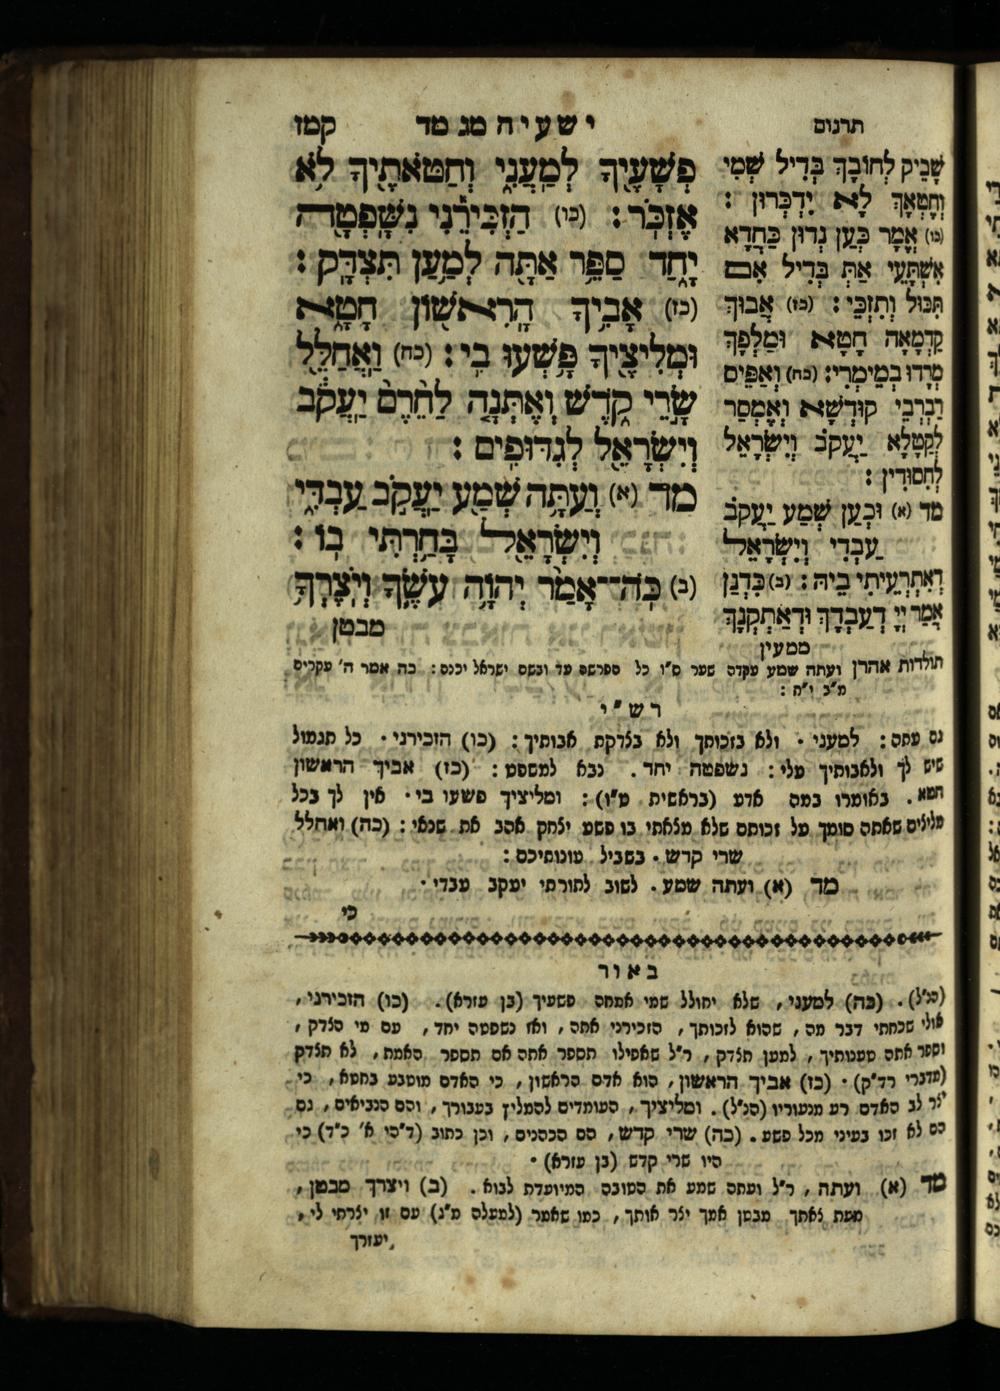 תרגום
ישעיה מג מד
קמז
פְשָׁעֶיךָ לְמַעֲנִי וְחַטֹּאתֶיךָ לֹא
אֶזְכֹּר : (כו) הַזְכִּירֵנִי נִשָּׁפְטָה
יָחַד סַפֵּר אַתָּה לְמַעַן תִּצְדָּק :
(כז) אָבִיךָ הָרִאשׁוֹן חָטָא
וּמְלִיצֶיךָ פָּשְׁעוּ בִי : (כח) וַאֲחַלֵּל
שָׂרֵי קֹדֶשׁ וְאֶתְּנָה לַחֵרֶם יַעֲקֹב
וְיִשְׂרָאֵל לְגִדּוּפִים :
מד (א) וְעַתָּה שְׁמַע יַעֲקֹב עַבְדִּי
וְיִשְׂרָאֵל בָּחַרְתִּי בוֹ :
(ב) כֹּה־אָמַר יְהוָה עֹשֶׂךָ וְיֹצֶרְךָ
מבטן
שָׁבֵיק לְחוֹבָךְ בְּדִיל שְׁמִי
וְחָטְאָךְ לָא יִדְכְּרוּן :
(כו) אֱמַר כְּעַן נְדוּן כַּחֲדָא
אִשְׁתָּעֵי אַתְּ בְּדִיל אִם
תִּכּוּל וְתִזְכֵּי : (כז) אֲבוּךְ
קַדְמָאָה חָטָא וּמַלְפָךְ
מְרָדוּ בְמֵימְרִי : (כח) וְאַפֵּיס
רַבְרְבֵי קוּדְשָׁא וְאֶמְסַר
לְקַטָלָא יַעֲקֹב וְיִשְׂרָאֵל
לְחִסוּדִין :
מד (א) וּכְעַן שְׁמַע יַעֲקֹב
עַבְדִי וְיִשְׂרָאֵל
דְאִתְרְעֵיתִי בֵיהּ : (ב) כִּדְנַן
אֲמַר יְיָ דְעַבְדָךְ וּדְאַתְקְנָךְ
ממעין
תולדות אהרן ועתה שמע עקדה שער ס"ו כל הפרשה עד ובשם ישראל יכנה : כה אמר ה' עקרים
מ"ב י"ח :
רש"י
גם עתה : למעני . ולא בזכותך ולא בצדקת אבותיך : (כו) הזכירני . כל תגמול
שיש לך ולאבותיך עלי : נשפטה יחד . נבא למשפט : (כז) אביך הראשון
חטא . באומרו במה אדע (בראשית ט"ו) : ומליציך פשעו בי . אין לך בכל
מליצים שאתה סומך על זכותם שלא מצאתי בו פשע יצחק אהב את שנאי : (כח) ואחלל
שרי קדש . בשביל עונותיכם :
מד (א) ועתה שמע . לשוב לתורתי יעקב עבדי .
כי
באור
(הנ"ל) . (כה) למעני , שלא יחולל שמי אמחה פשעיך (בן עזרא) . (כו) הזכירני ,
אולי שכחתי דבר מה , שהוא לזכותך , הזכירני אתה , ואז נשפטה יחד , עם מי הצדק ,
וספר אתה טענותיך , למען תצדק , ר"ל שאפילו תספר אתה אם תספר האמת , לא תצדק
(מדברי רד"ק) . (כז) אביך הראשון , הוא אדם הראשון , כי האדם מוטבע בחטא , כי
יצר לב האדם רע מנעוריו (הנ"ל) . ומליציך , העומדים להמליץ בעבורך , והם הנביאים , גם
הם לא זכו בעיני מכל פשע . (כח) שרי קדש , הם הכהנים , וכן כתוב (ד"הי א' כ"ד) כי
היו שרי קדש (בן עזרא) .
מד (א) ועתה , ר"ל ועתה שמע את הטובה המיועדת לבוא . (ב) ויצרך מבטן ,
מעת צאתך מבטן אמך יצר אותך , כמו שאמר (למעלה מ"ג) עם זו יצרתי לי ,
יעזרך